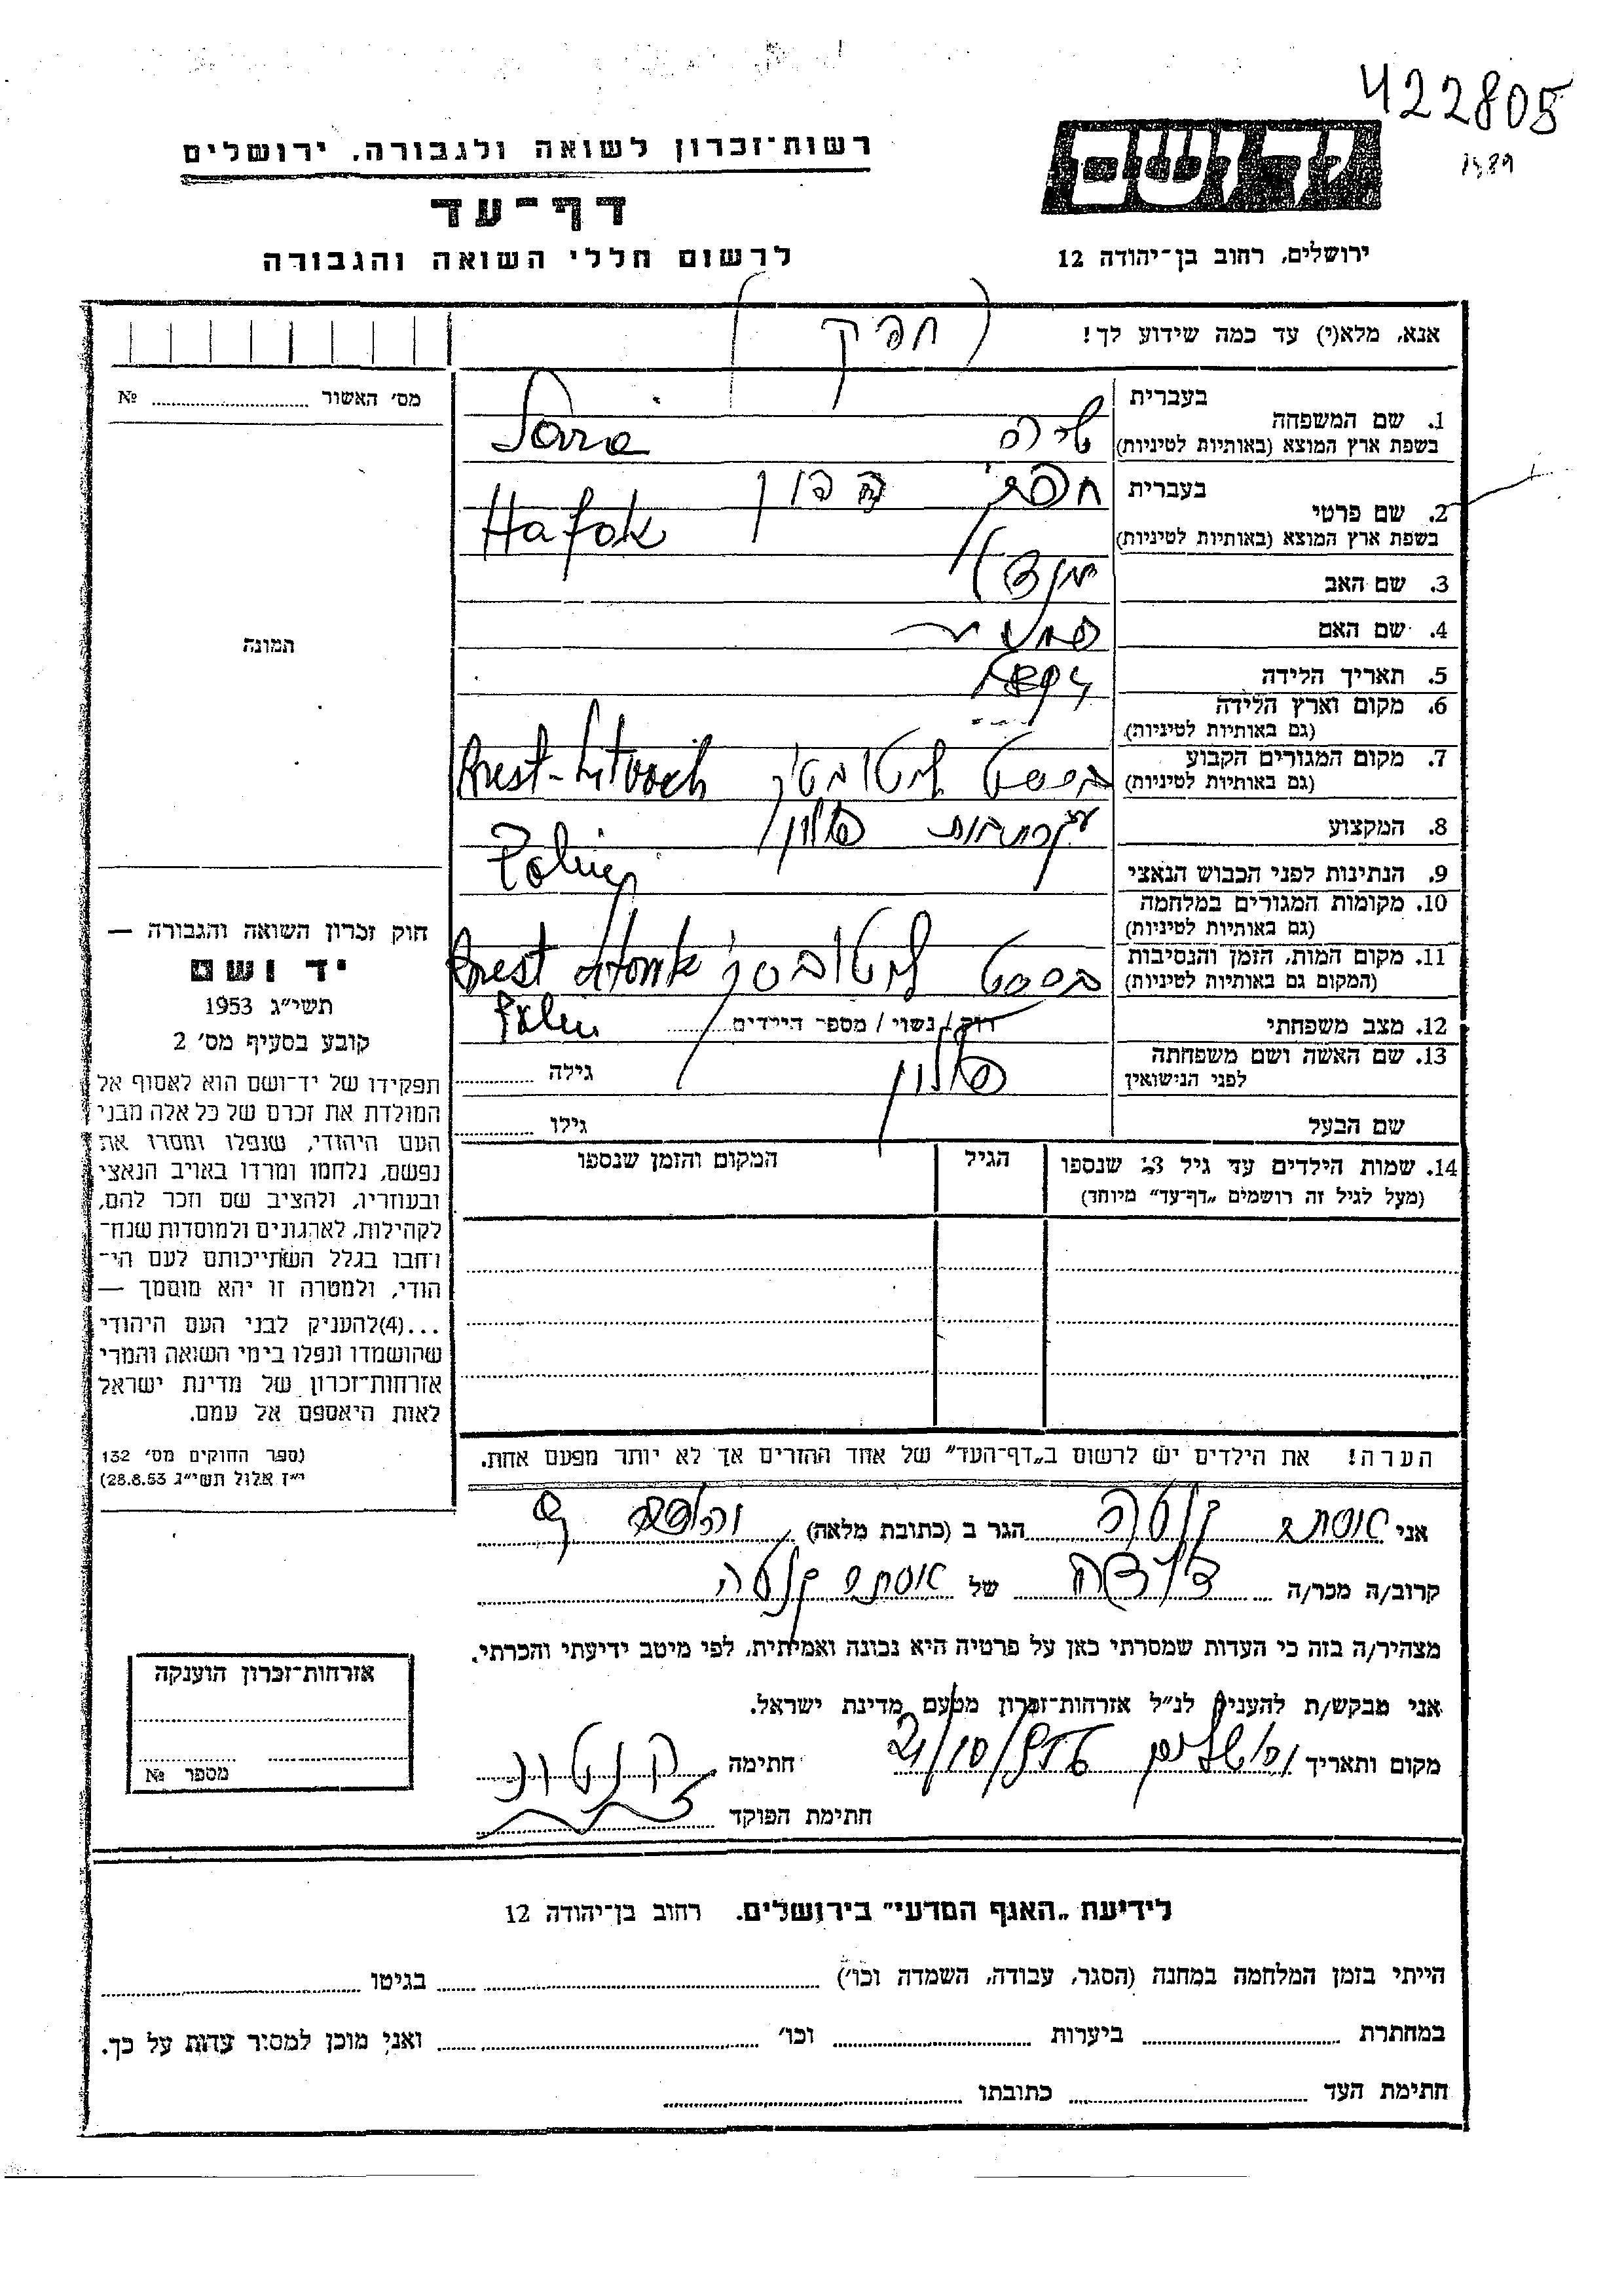 422805
1989
רשות־זכרון לשואה ולגבורה. ירושלים
דף־עד
לרשום חללי השואה והגבורה
יד ושם
ירושלים, רחוב בן־יהודה 12
אנא, מלא(י) עד כמה שידוע לך!
חפק
מס׳ האשור № 
תמונה
1. שם המשפחה
בעברית
בשפת ארץ המוצא (באותיות לטיניות)
שרה Sara
2. שם פרטי
בעברית
בשפת ארץ המוצא (באותיות לטיניות)
Hafok
3. שם האב
4. שם האם
5. תאריך הלידה
6. מקום וארץ הלידה
(גם באותיות לטיניות)
7. מקום המגורים הקבוע
(גם באותיות לטיניות)
בריסט ליטובסק Brest-Litovsk
8. המקצוע
עקרת בית פולין
9. הנתינות לפני הכבוש הנאצי
10. מקומות המגורים במלחמה
(גם באותיות לטיניות)
11. מקום המות, הזמן והנסיבות
(המקום גם באותיות לטיניות)
בריסט ליטובסק Brest
12. מצב משפחתי
רוק / נשוי / מספר הילדים
13. שם האשה ושם משפחתה
לפני הנישואין
פולין
גילה
שם הבעל
גילו
14. שמות הילדים עד גיל 18 שנספו
(מעל לגיל זה רושמים „דף־עד” מיוחד)
הגיל
המקום והזמן שנספו
הערה! את הילדים יש לרשום ב„דף־העד” של אחד ההורים אך לא יותר מפעם אחת.
חוק זכרון השואה והגבורה —
יד ושם
תשי״ג 1953
קובע בסעיף מס׳ 2
תפקידו של יד־ושם הוא לאסוף אל
המולדת את זכרם של כל אלה מבני
העם היהודי, שנפלו ומסרו את
נפשם, נלחמו ומרדו באויב הנאצי
ובעוזריו, ולהציב שם וזכר להם,
לקהילות, לארגונים ולמוסדות שנח־
רחבו בגלל השתייכותם לעם הי־
הודי, ולמטרה זו יהא מוסמך —
...(4)להעניק לבני העם היהודי
שהושמדו ונפלו בימי השואה והמרי
אזרחות־זכרון של מדינת ישראל
לאות היאספם אל עמם.
(ספר החוקים מס׳ 132
י״ז אלול תשי״ג 28.8.53)
אני אסתר הגר ב (כתובת מלאה)
קרוב/ה מכר/ה דודה של אסתר
מצהיר/ה בזה כי העדות שמסרתי כאן על פרטיה היא נכונה ואמיתית, לפי מיטב ידיעתי והכרתי.
אני מבקש/ת להעניק לנ״ל אזרחות־זכרון מטעם מדינת ישראל.
מקום ותאריך ירושלים חתימה
חתימת הפוקד
אזרחות־זכרון הוענקה
מספר №
לידיעת „האגף המדעי” בירושלים. רחוב בן־יהודה 12
הייתי בזמן המלחמה במחנה (הסגר, עבודה, השמדה וכו׳) בגיטו
במחתרת ביערות וכו׳ ואני מוכן למסיר עדות על כך.
חתימת העד כתובתו